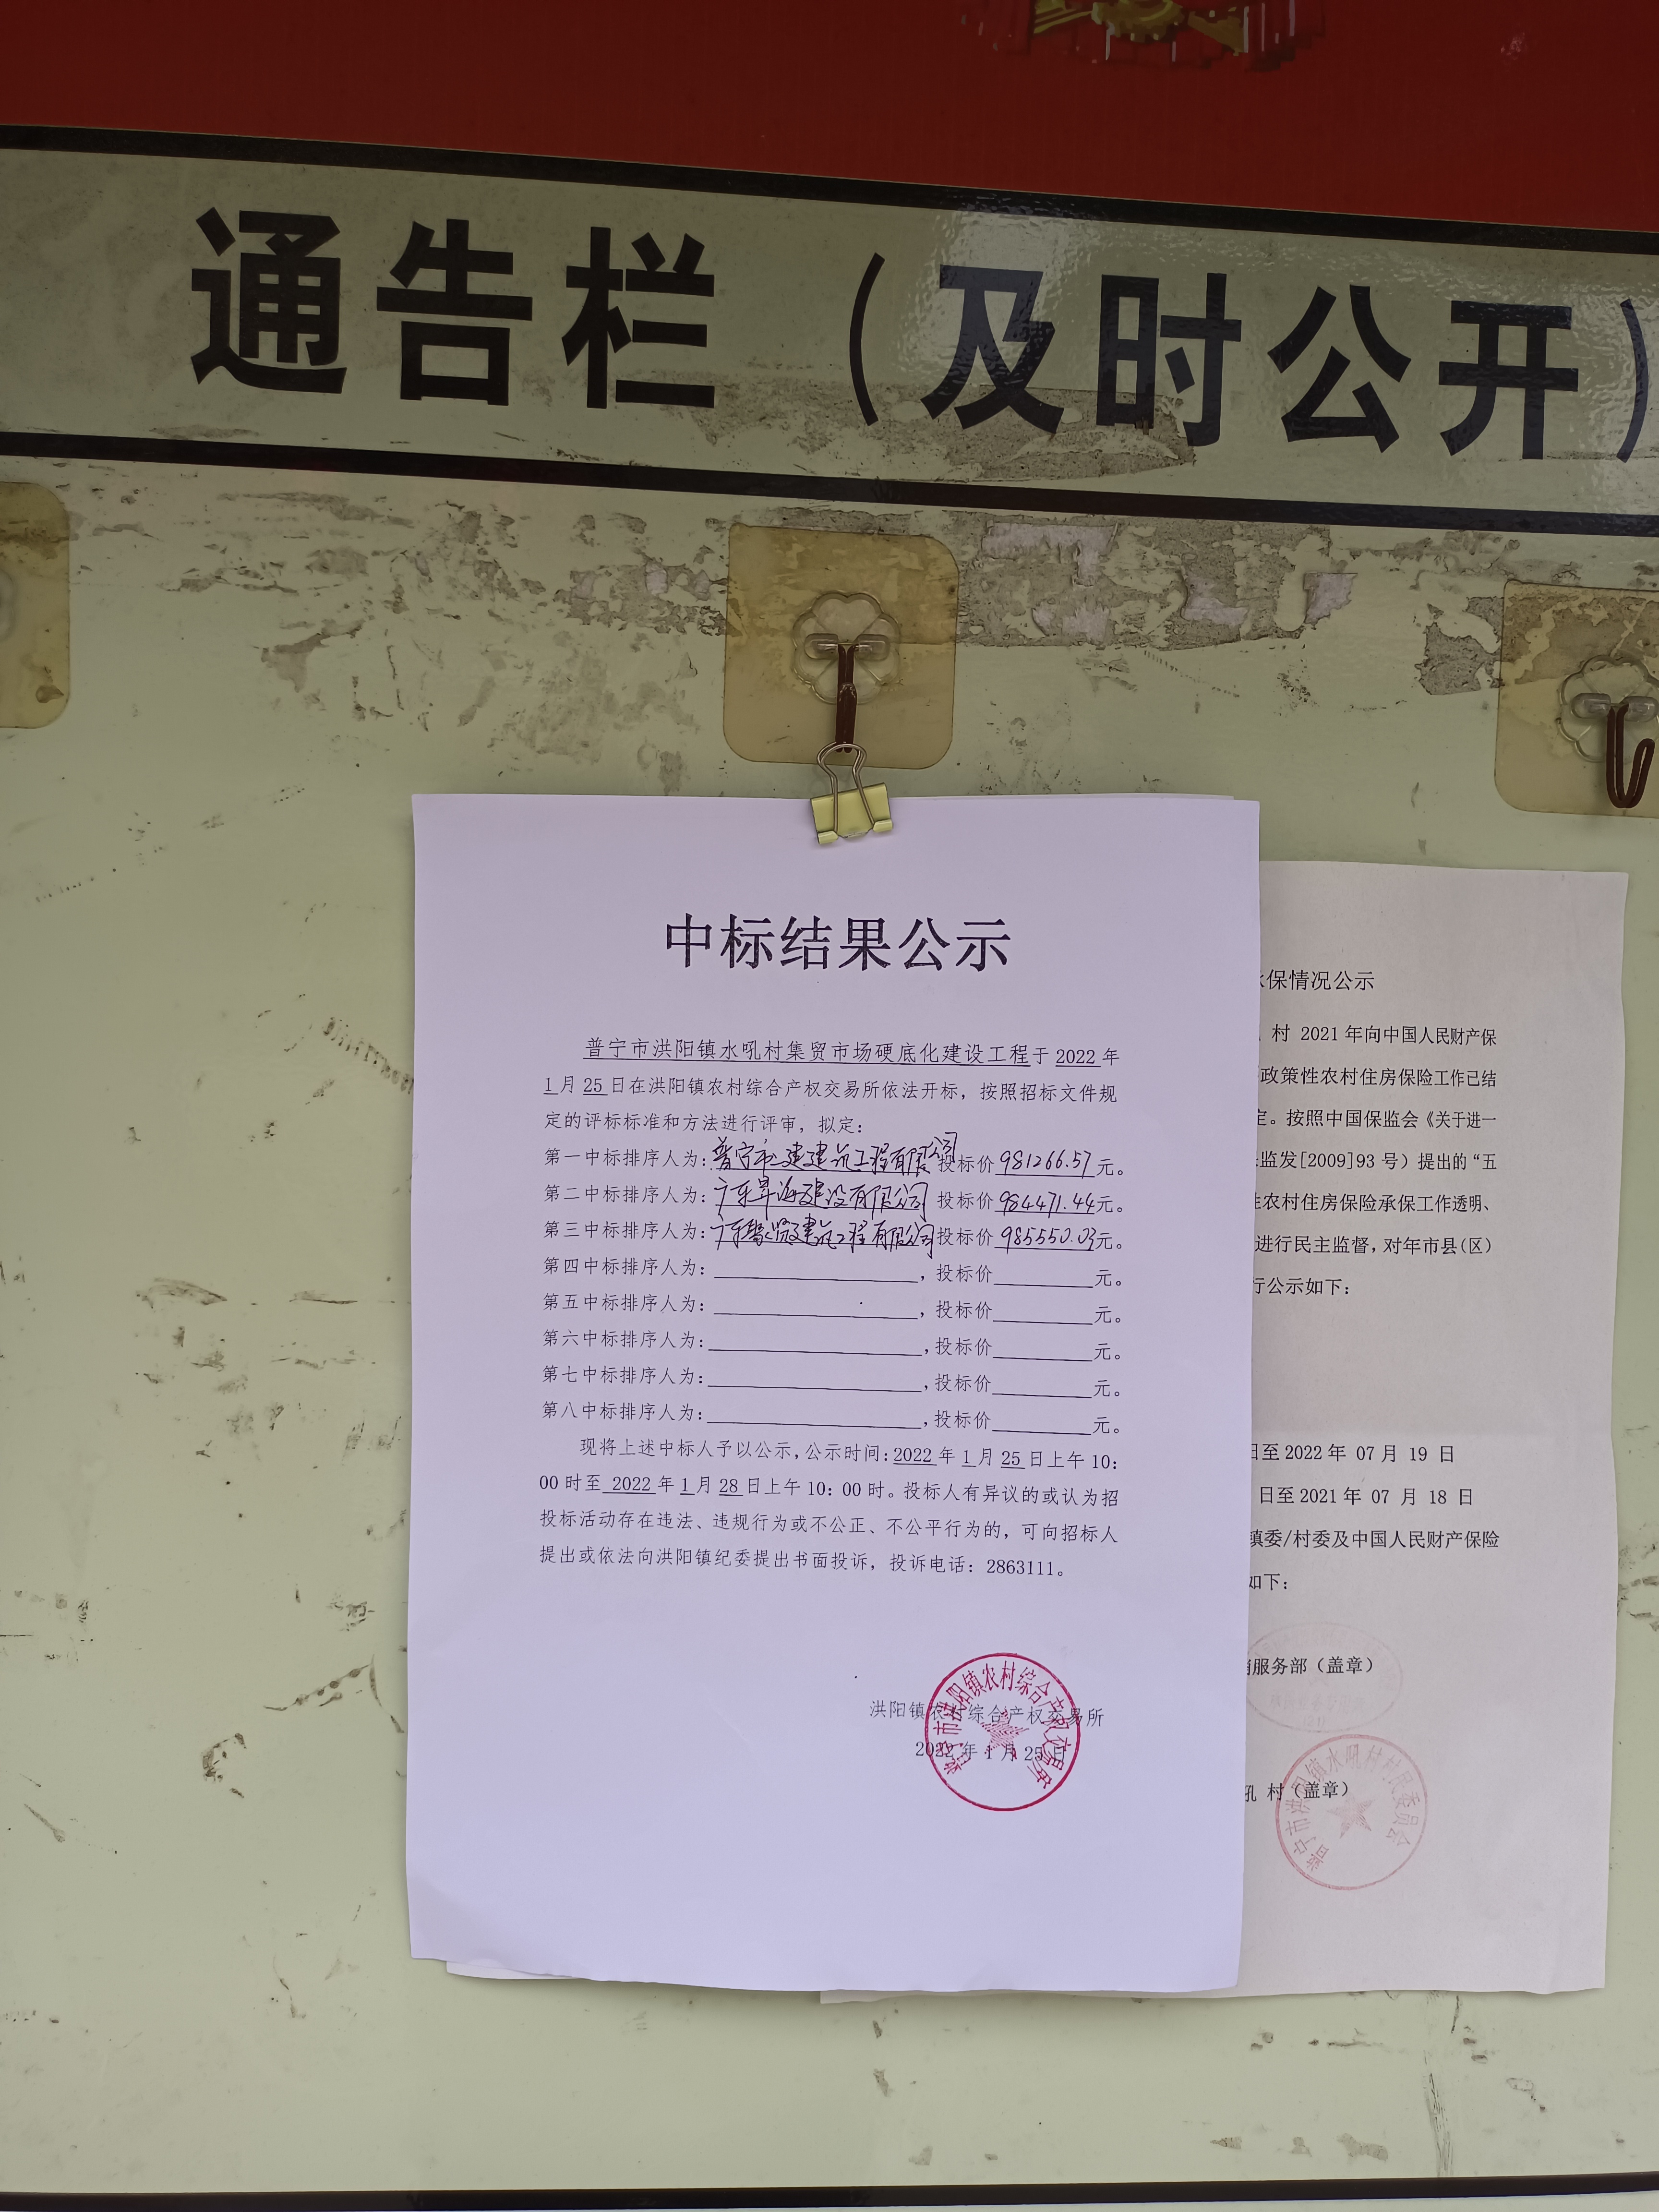 通告栏（及时公开）
中标结果公示
普宁市洪阳镇水吼村集贸市场硬底化建设工程于 2022 年
1 月 25 日在洪阳镇农村综合产权交易所依法开标，按照招标文件规
定的评标标准和方法进行评审，拟定：
第一中标排序人为：普宁市二建建筑工程有限公司 投标价 981266.57 元。
第二中标排序人为：广东 海建设有限公司 投标价 984471.44 元。
第三中标排序人为：广东 建筑工程有限公司 投标价 985550.03 元。
第四中标排序人为： ，投标价 元。
第五中标排序人为： ，投标价 元。
第六中标排序人为： ，投标价 元。
第七中标排序人为： ，投标价 元。
第八中标排序人为： ，投标价 元。
现将上述中标人予以公示，公示时间：2022 年 1 月 25 日上午 10：
00 时至 2022 年 1 月 28 日上午 10：00 时。投标人有异议的或认为招
投标活动存在违法、违规行为或不公正、不公平行为的，可向招标人
提出或依法向洪阳镇纪委提出书面投诉，投诉电话：2863111。
洪阳镇农村综合产权交易所
2022 年 1 月 25 日
普宁市洪阳镇农村综合产权交易所
保情况公示
村 2021 年向中国人民财产保
政策性农村住房保险工作已结
定。按照中国保监会《关于进一
监发[2009]93 号）提出的“五
农村住房保险承保工作透明、
进行民主监督，对年市县（区）
行公示如下：
日至 2022 年 07 月 19 日
日至 2021 年 07 月 18 日
镇委/村委及中国人民财产保险
如下：
服务部（盖章）
吼 村（盖章）
普宁市洪阳镇水吼村村民委员会